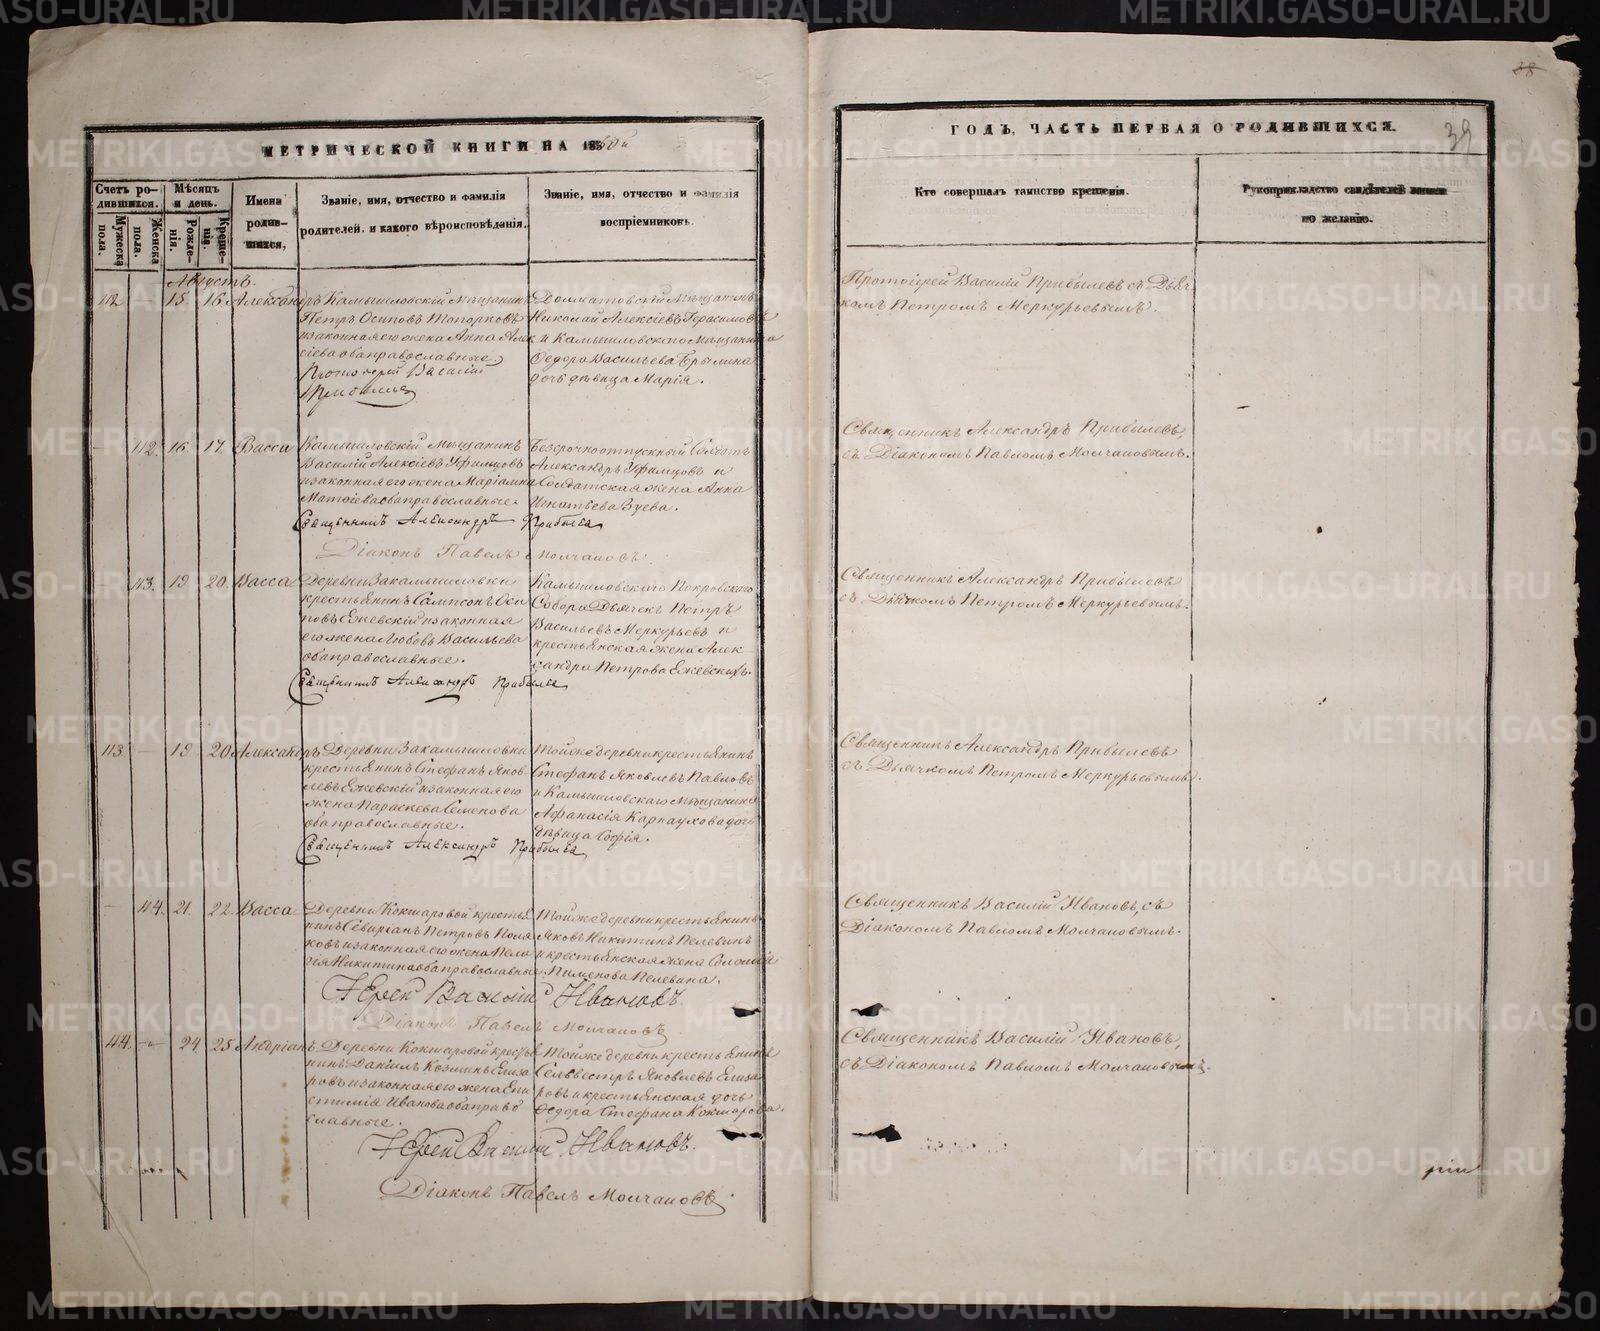 38
39
МЕТРИЧЕСКОЙ КНИГИ НА 1860й
ГОДЪ, ЧАСТЬ ПЕРВАЯ О РОДИВШИХСЯ.
Счетъ ро-
дившихся.
Мужеска
пола.
Женска
пола.
Мѣсяцъ
и день.
Рожде-
нія.
Креще-
нія.
Имена
родив-
шихся,
Званіе, имя, отчество и фамилія
родителей, и какого вѣроисповѣданія.
Званіе, имя, отчество и фамилія
воспріемниковъ.
Кто совершалъ таинство крещенія.
Рукоприкладство свидѣтелей записи
по желанію.
Августъ.
112. - 15. 16. Александръ
Камышловскій Мѣщанинъ
Петръ Осиповъ Топорковъ
и законная его жена Анна Алек
сіева оба православные.
Протоіерей Василій
Прибылевъ
Долматовскій Мѣщанинъ
Николай Алексіевъ Герасимовъ
и Камышловскаго Мѣщанина
Ѳедора Васильева Брылина
дочь дѣвица Марія.
Протоіерей Василій Прибылевъ съ Дьяч
комъ Петромъ Меркурьевымъ.
- 112. 16. 17. Васса
Камышловскій Мѣщанинъ
Василій Алексіевъ Уфимцовъ
и законная его жена Маріамна
Матѳіева оба православные.
Священникъ Александръ Прибылевъ
Діаконъ Павелъ Молчановъ.
Безсрочноотпускный Солдатъ
Александръ Уфимцовъ и
Солдатская жена Анна
Игнатьева Зуева.
Священникъ Александръ Прибылевъ,
съ Діакономъ Павломъ Молчановымъ.
113. 19. 20. Васса
Деревни Закамышловки
крестьянинъ Сампсонъ Оси
повъ Ежевскій и законная
его жена Любовь Васильева
оба православные.
Священникъ Александръ Прибылев
Камышловскаго Покровскаго
Собора Дьячекъ Петръ
Васильевъ Меркурьевъ и
крестьянская жена Алек
сандра Петрова Ежевскихъ.
Священникъ Александръ Прибылевъ
съ Дьячкомъ Петромъ Меркурьевымъ.
113. - 19. 20. Александръ
Деревни Закамышловки
крестьянинъ Стефанъ Яков
левъ Ежевскій и законная его
жена Параскева Семенова
оба православные.
Священникъ Александръ Прибылев
Тойже деревни крестьянинъ
Стефанъ Яковлевъ Павловъ
и Камышловскаго Мѣщанина
Аѳанасія Карпаухова дочь
дѣвица Софія.
Священникъ Александръ Прибылевъ
съ Дьячкомъ Петромъ Меркурьевымъ.
- 114. 21. 22. Васса
Деревни Кокшаровой крестья
нинъ Севиріанъ Петровъ Поля
ковъ и законная его жена Пела
гія Никитина оба православные
Іерей Василій Ивановъ
Діаконъ Павелъ Молчановъ
Тойже деревни крестьянинъ
Яковъ Никитинъ Пелевинъ
и крестьянская жена Соломія
Пименова Пелевина.
Священникъ Василій Ивановъ, съ
Діакономъ Павломъ Молчановымъ.
114. -"- 24. 25. Андріанъ
Деревни Кокшаровой крестья
нинъ Даніилъ Козминъ Елиза
ровъ и законная его жена Епи
стимія Иванова оба право
славные.
Іерей Василій Ивановъ.
Діаконъ Павелъ Молчановъ.
Тойже деревни крестьянинъ
Селивестръ Яковлевъ Елиза
ровъ и крестьянская дочь
Ѳедора Стефана Кокшарова.
Священникъ Василій Ивановъ,
съ Діакономъ Павломъ Молчановымъ.
METRIKI.GASO-URAL.RU